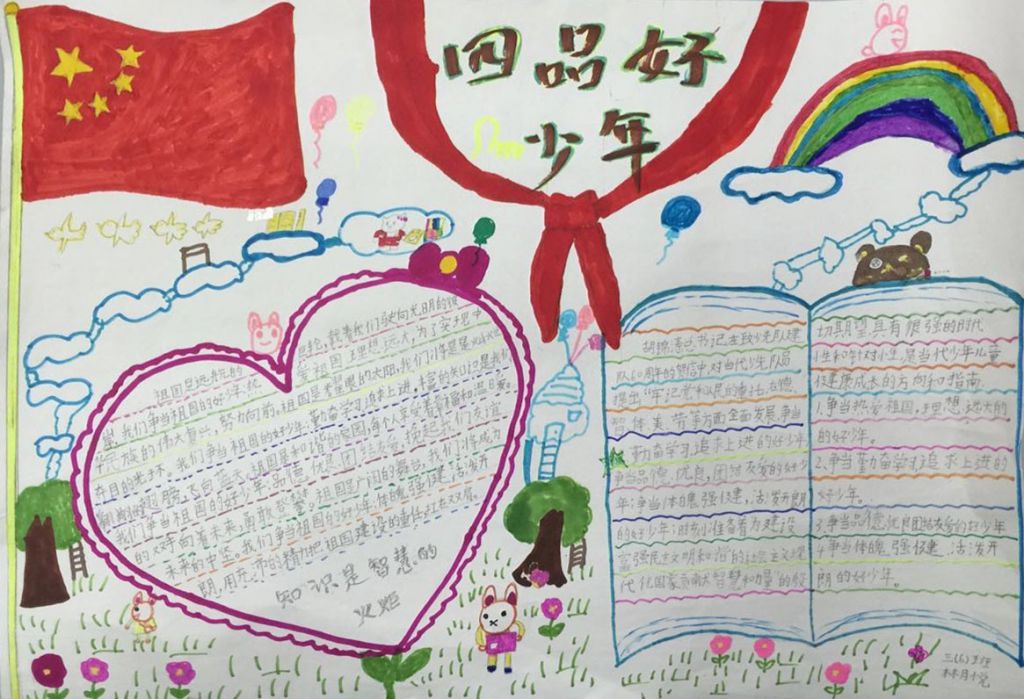 四品好
少年
祖国是远航的
巨轮,载着我们驶向光明的彼
岸,我们争当祖国的好少年:热
爱祖国,理想远大,为了实现中
华民族的伟大复兴,努力向前。祖国是
夺目的光环。我们争当祖国的好少年:勤奋学习,追求上进,
我们争当祖国的好少年:品德优良,团结友爱,
的双手向着未来,勇敢登攀。祖国是广阔的舞台,我们将成为
未来的中坚。我们争当祖国的好少年:体魄强健,活泼开
朗,用充沛的精力把祖国建设的重任扛在双肩。
知识是智慧的
火炬
胡锦涛总书记在致少先队建
队60周年的贺信中,对当代少先队员
提出“牢记党和人民的重托,在德
智、体、美、劳等方面全面发展,争当
勤奋学习,追求上进的好少年
争当品德优良,团结友爱的好少
年;争当体魄强健,活泼开朗
的好少年;时刻准备着为建设
富强民主文明和谐的社会主义现
代化国家贡献智慧和力量”的殷
切期望具有很强的时代
性和针对性,是当代少年儿童
健康成长的方向和指南.
1.争当热爱祖国,理想远大的
的好少年。
2.争当勤奋学习追求上进的
好少年。
3.争当品德优良团结友爱的好少年
4.争当体魄强健、活泼开
朗的好少年。
三(6)班